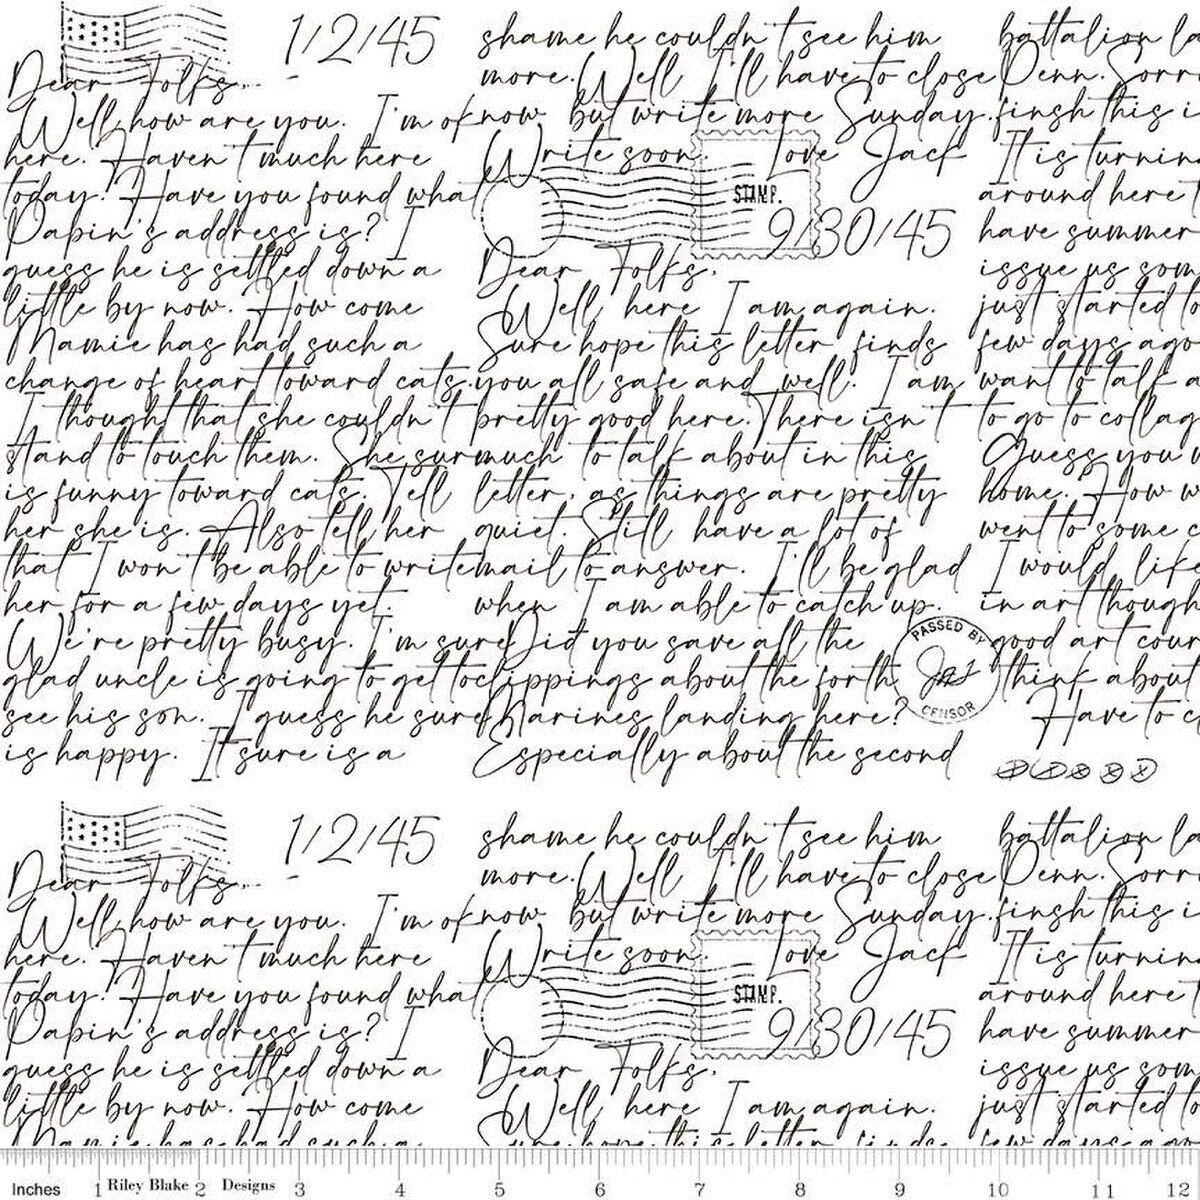 1/2/45
Dear Folks,
Well how are you. I'm ok
here. Haven't much here
today. Have you found what
Papin's address is? I
guess he is settled down a
little by now. How come
Mamie has had such a
change of heart toward cats.
I thought that she couldn't
stand to touch them. She sur
is funny toward cats. Tell
her she is. Also tell her
that I won't be able to write
her for a few days yet.
We're pretty busy. I'm sure
glad uncle is going to get to
see his son. I guess he sure
is happy. It sure is a
shame he couldn't see him
more. Well I'll have to close
now but write more Sunday.
Write soon. Love Jack
STAMP.
9/30/45
Dear Folks,
Well here I am again.
Sure hope this letter finds
you all safe and well. I am
pretty good here. There isn't
much to talk about in this
letter, as things are pretty
quiet. Still have a lot of
mail to answer. I'll be glad
when I am able to catch up.
Did you save all the
clippings about the forth
Marines landing here?
Especially about the second
PASSED BY
CENSOR
battalion la
Penn. Sorr
finsh this i
It is turnin
around here t
have summer
issue us som
just started to
few days ago
want to talk a
to go to collag
Guess you w
home. How w
went to some c
I would like
in art though
good art cour
think about
Have to c
1/2/45
Dear Folks,
Well how are you. I'm ok
here. Haven't much here
today. Have you found what
Papin's address is? I
guess he is settled down a
little by now. How come
Mamie has had such a
shame he couldn't see him
more. Well I'll have to close
now but write more Sunday.
Write soon. Love Jack
STAMP.
9/30/45
Dear Folks,
Well here I am again.
Sure hope this letter finds
battalion la
Penn. Sorr
finsh this i
It is turnin
around here t
have summer
issue us som
just started to
few days ago
Inches 1 Riley Blake 2 Designs 3 4 5 6 7 8 9 10 11 12